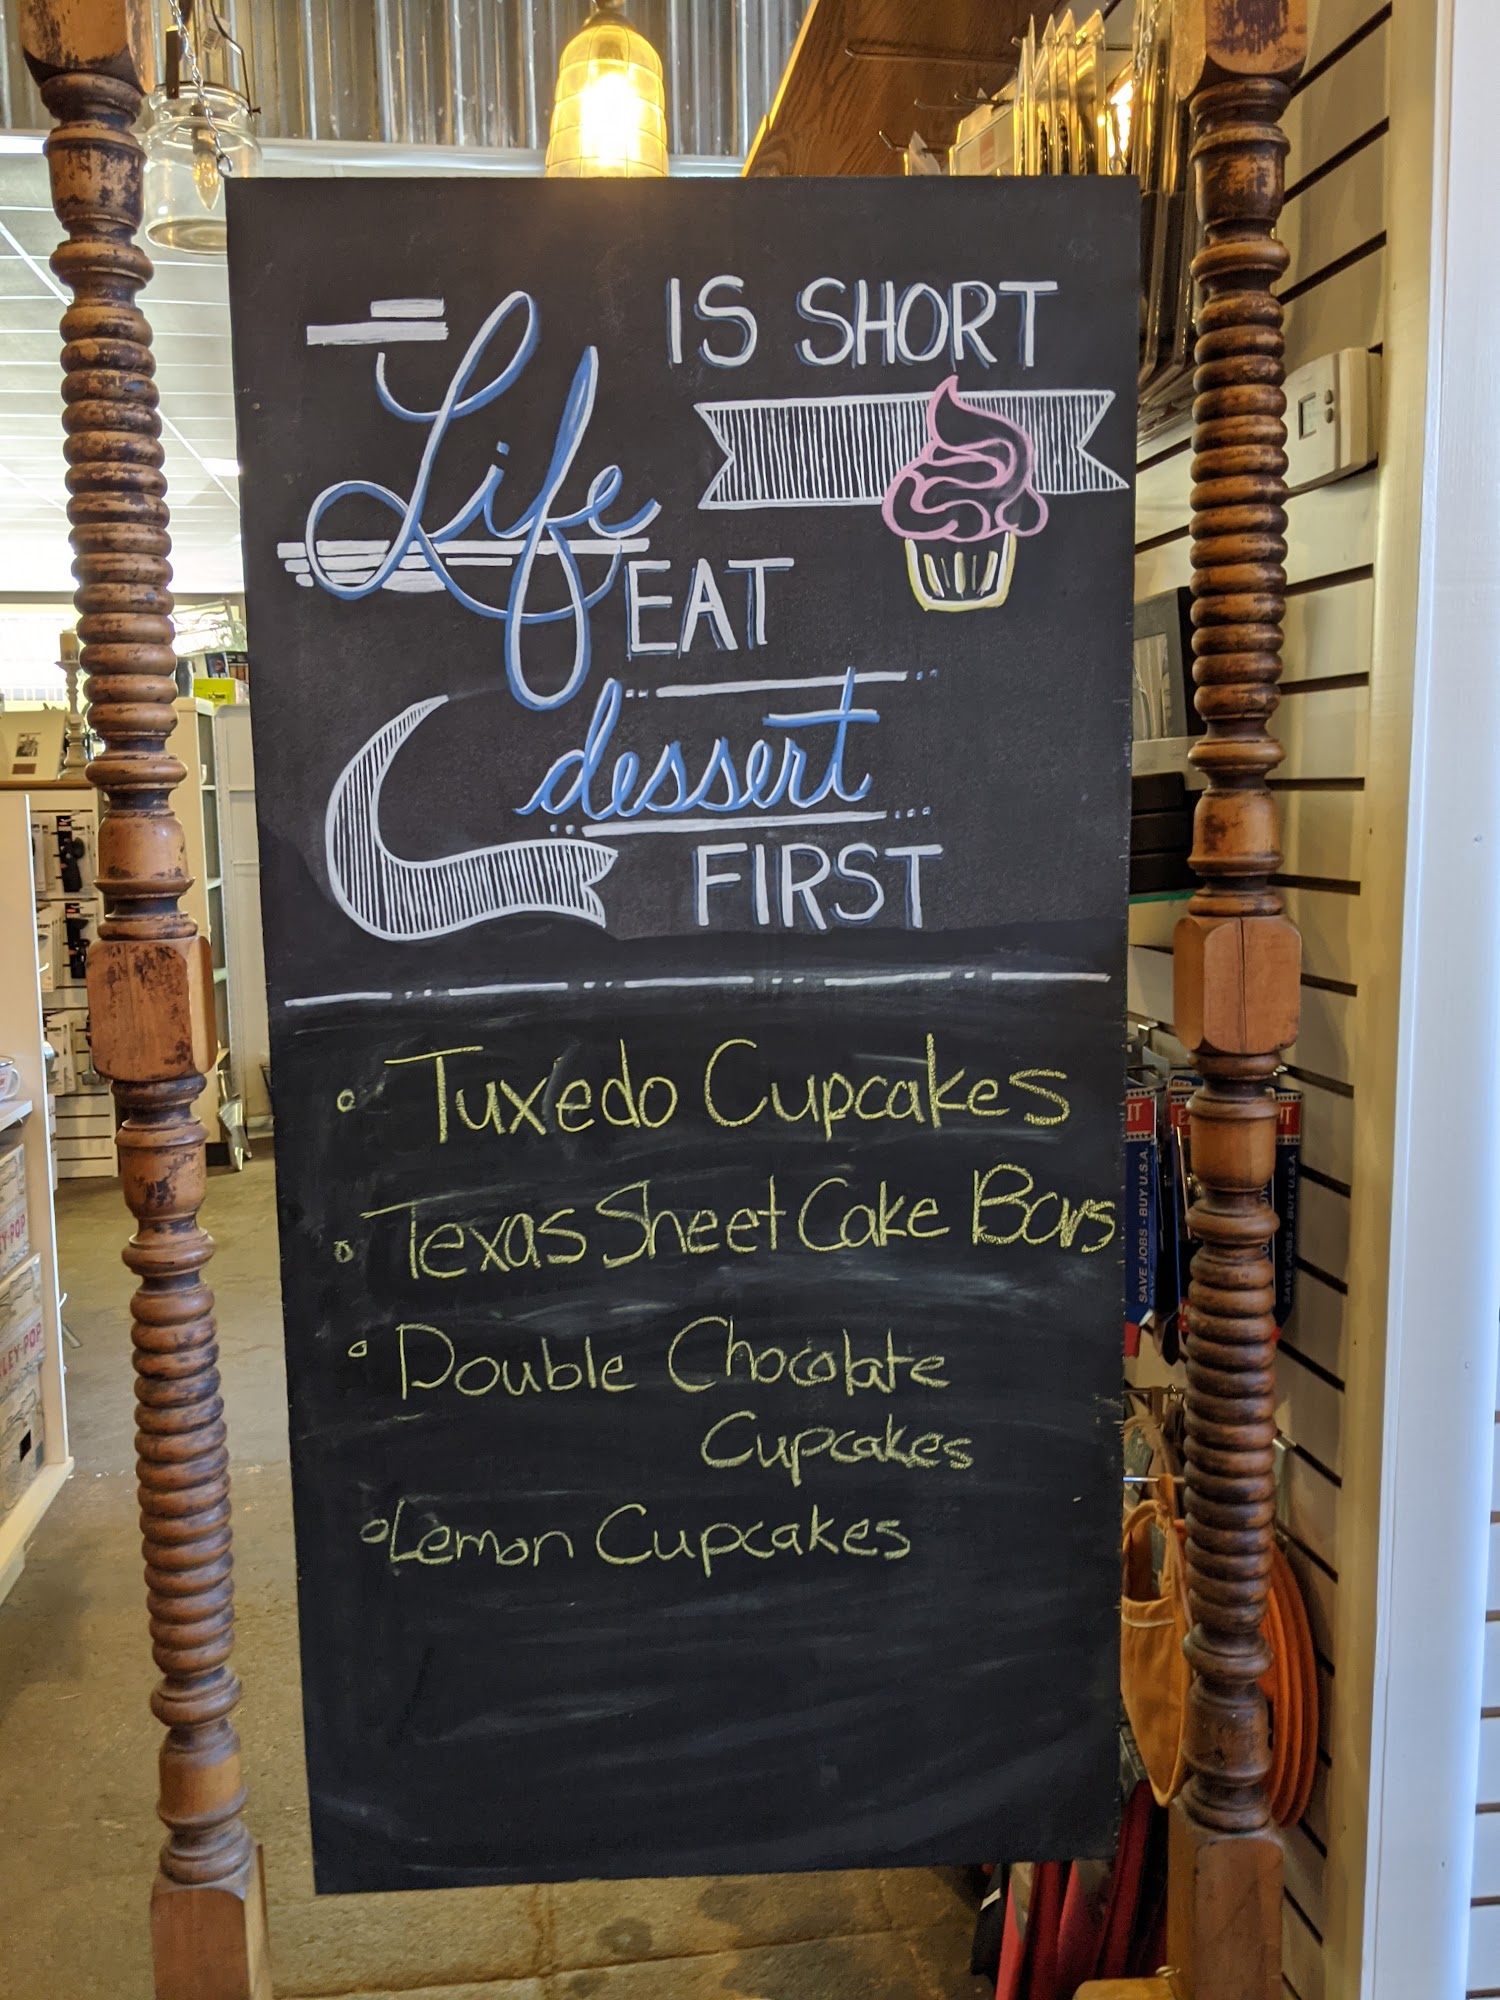 Life IS SHORT
EAT
dessert
FIRST
Tuxedo Cupcakes
Texas Sheet Cake Bars
Double Chocolate
Cupcakes
Lemon Cupcakes
SAVE JOBS - BUY U.S.A.
SAVE JOBS - BUY U.S.A.